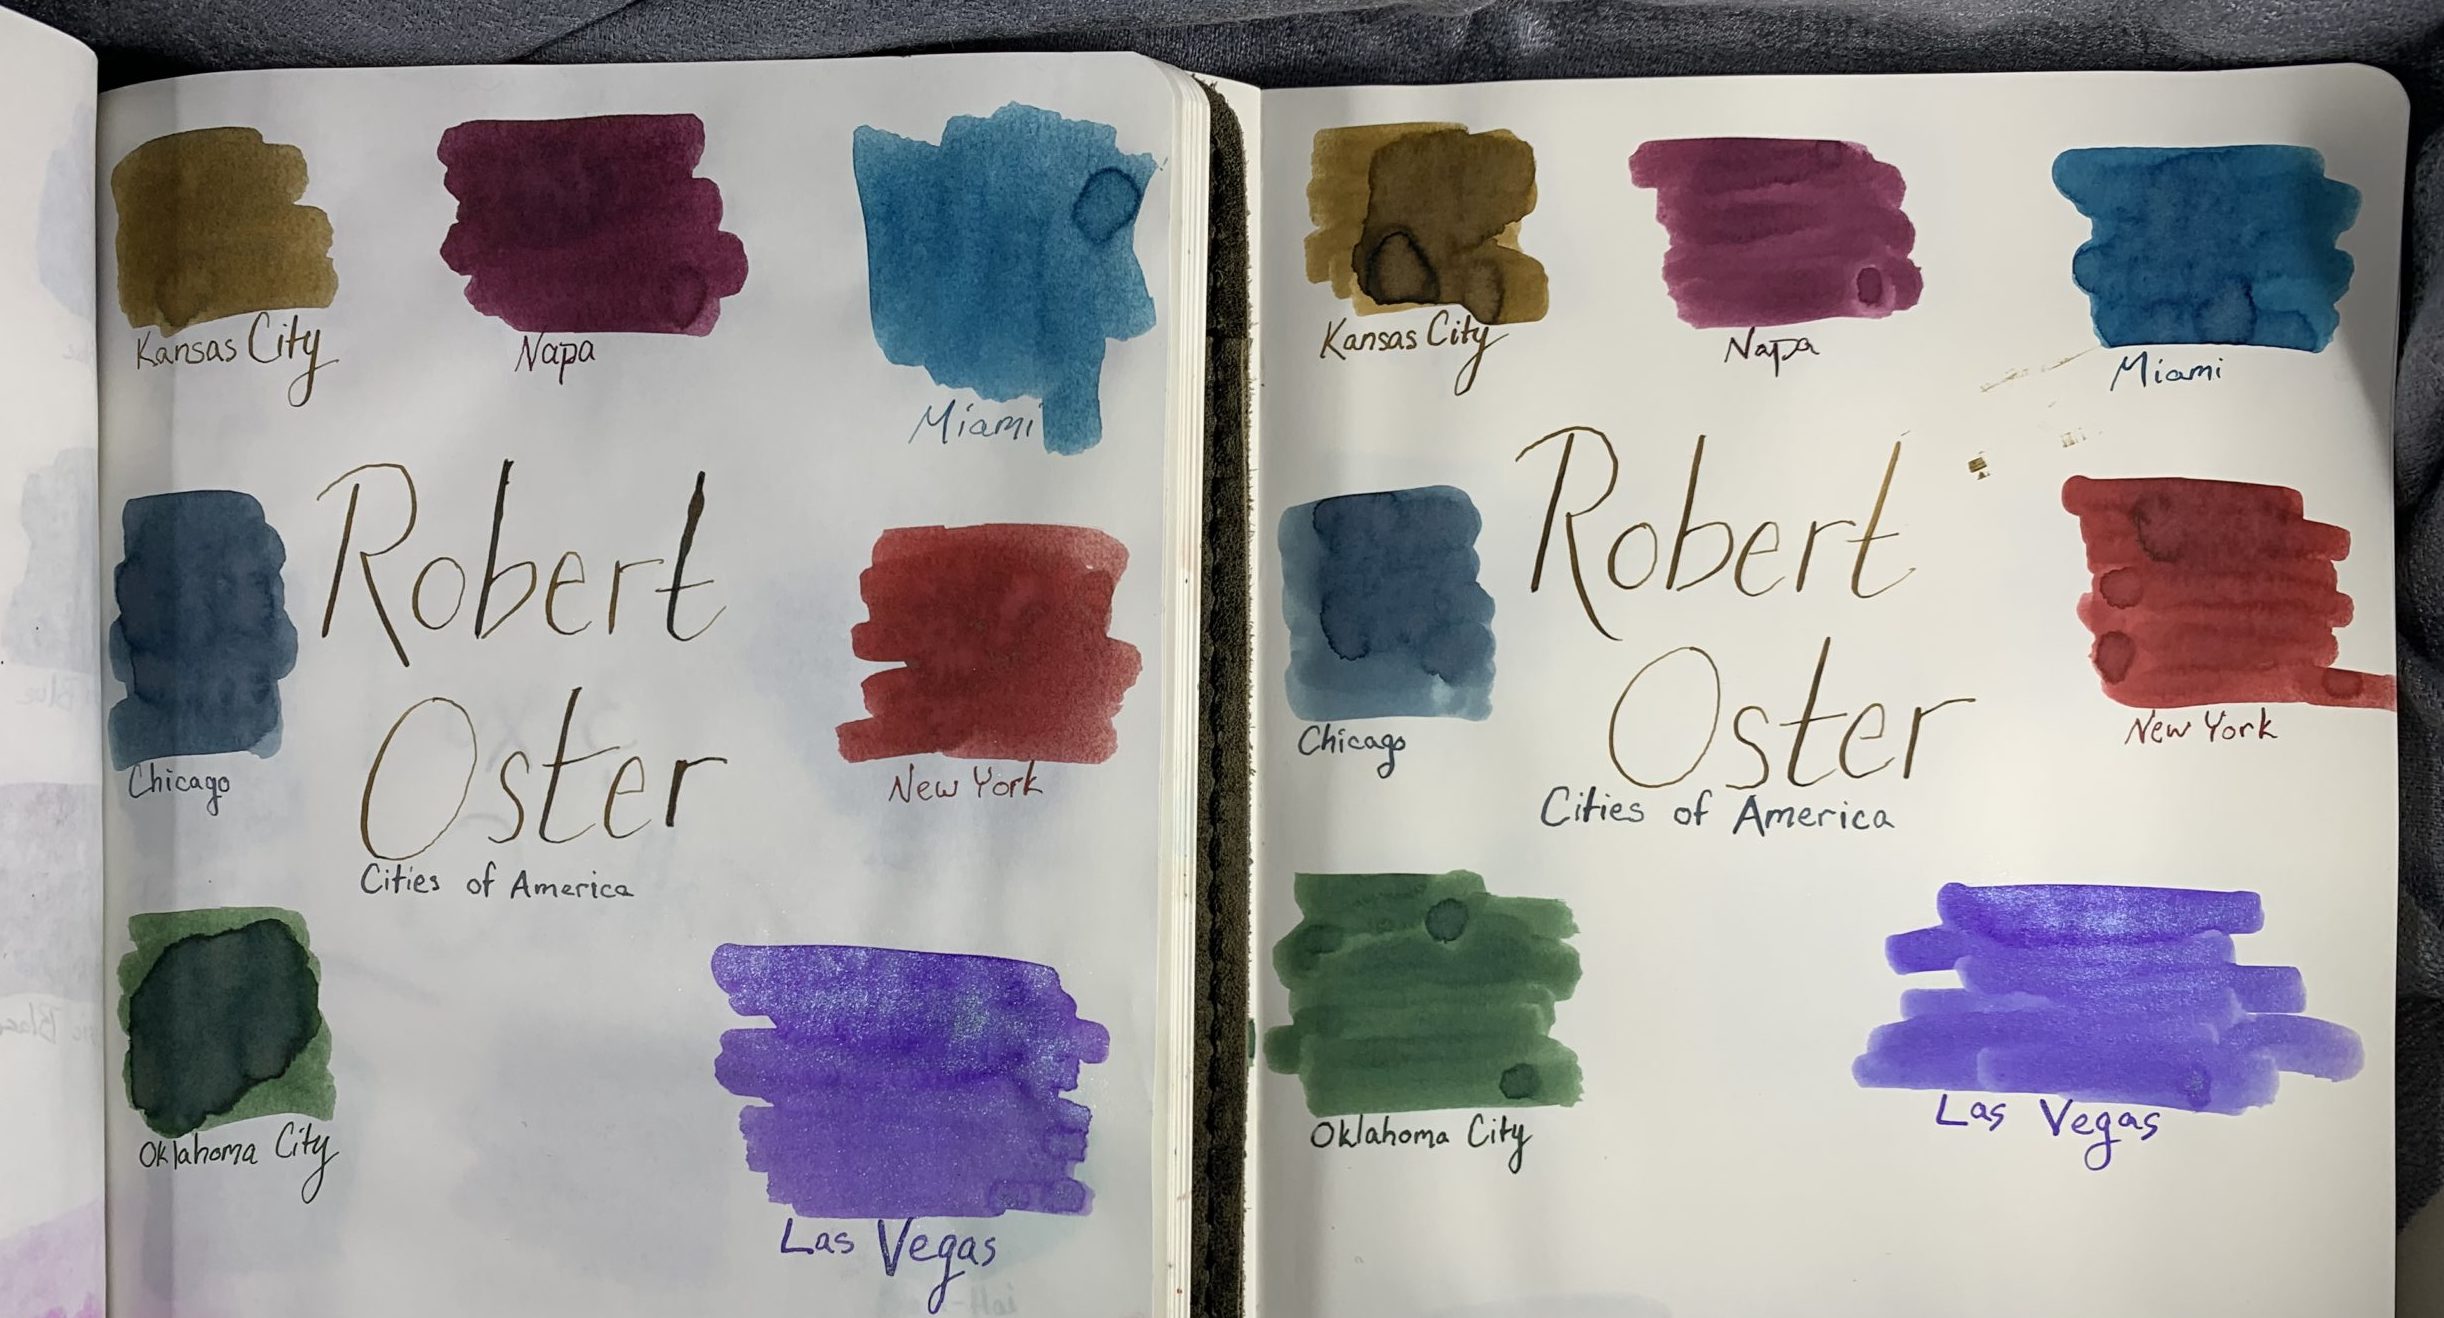 Kansas City
Napa
Miami
Robert
Chicago
New York
Oster
Cities of America
Oklahoma City
Las Vegas
Kansas City
Napa
Miami
Robert
Chicago
New York
Oster
Cities of America
Oklahoma City
Las Vegas